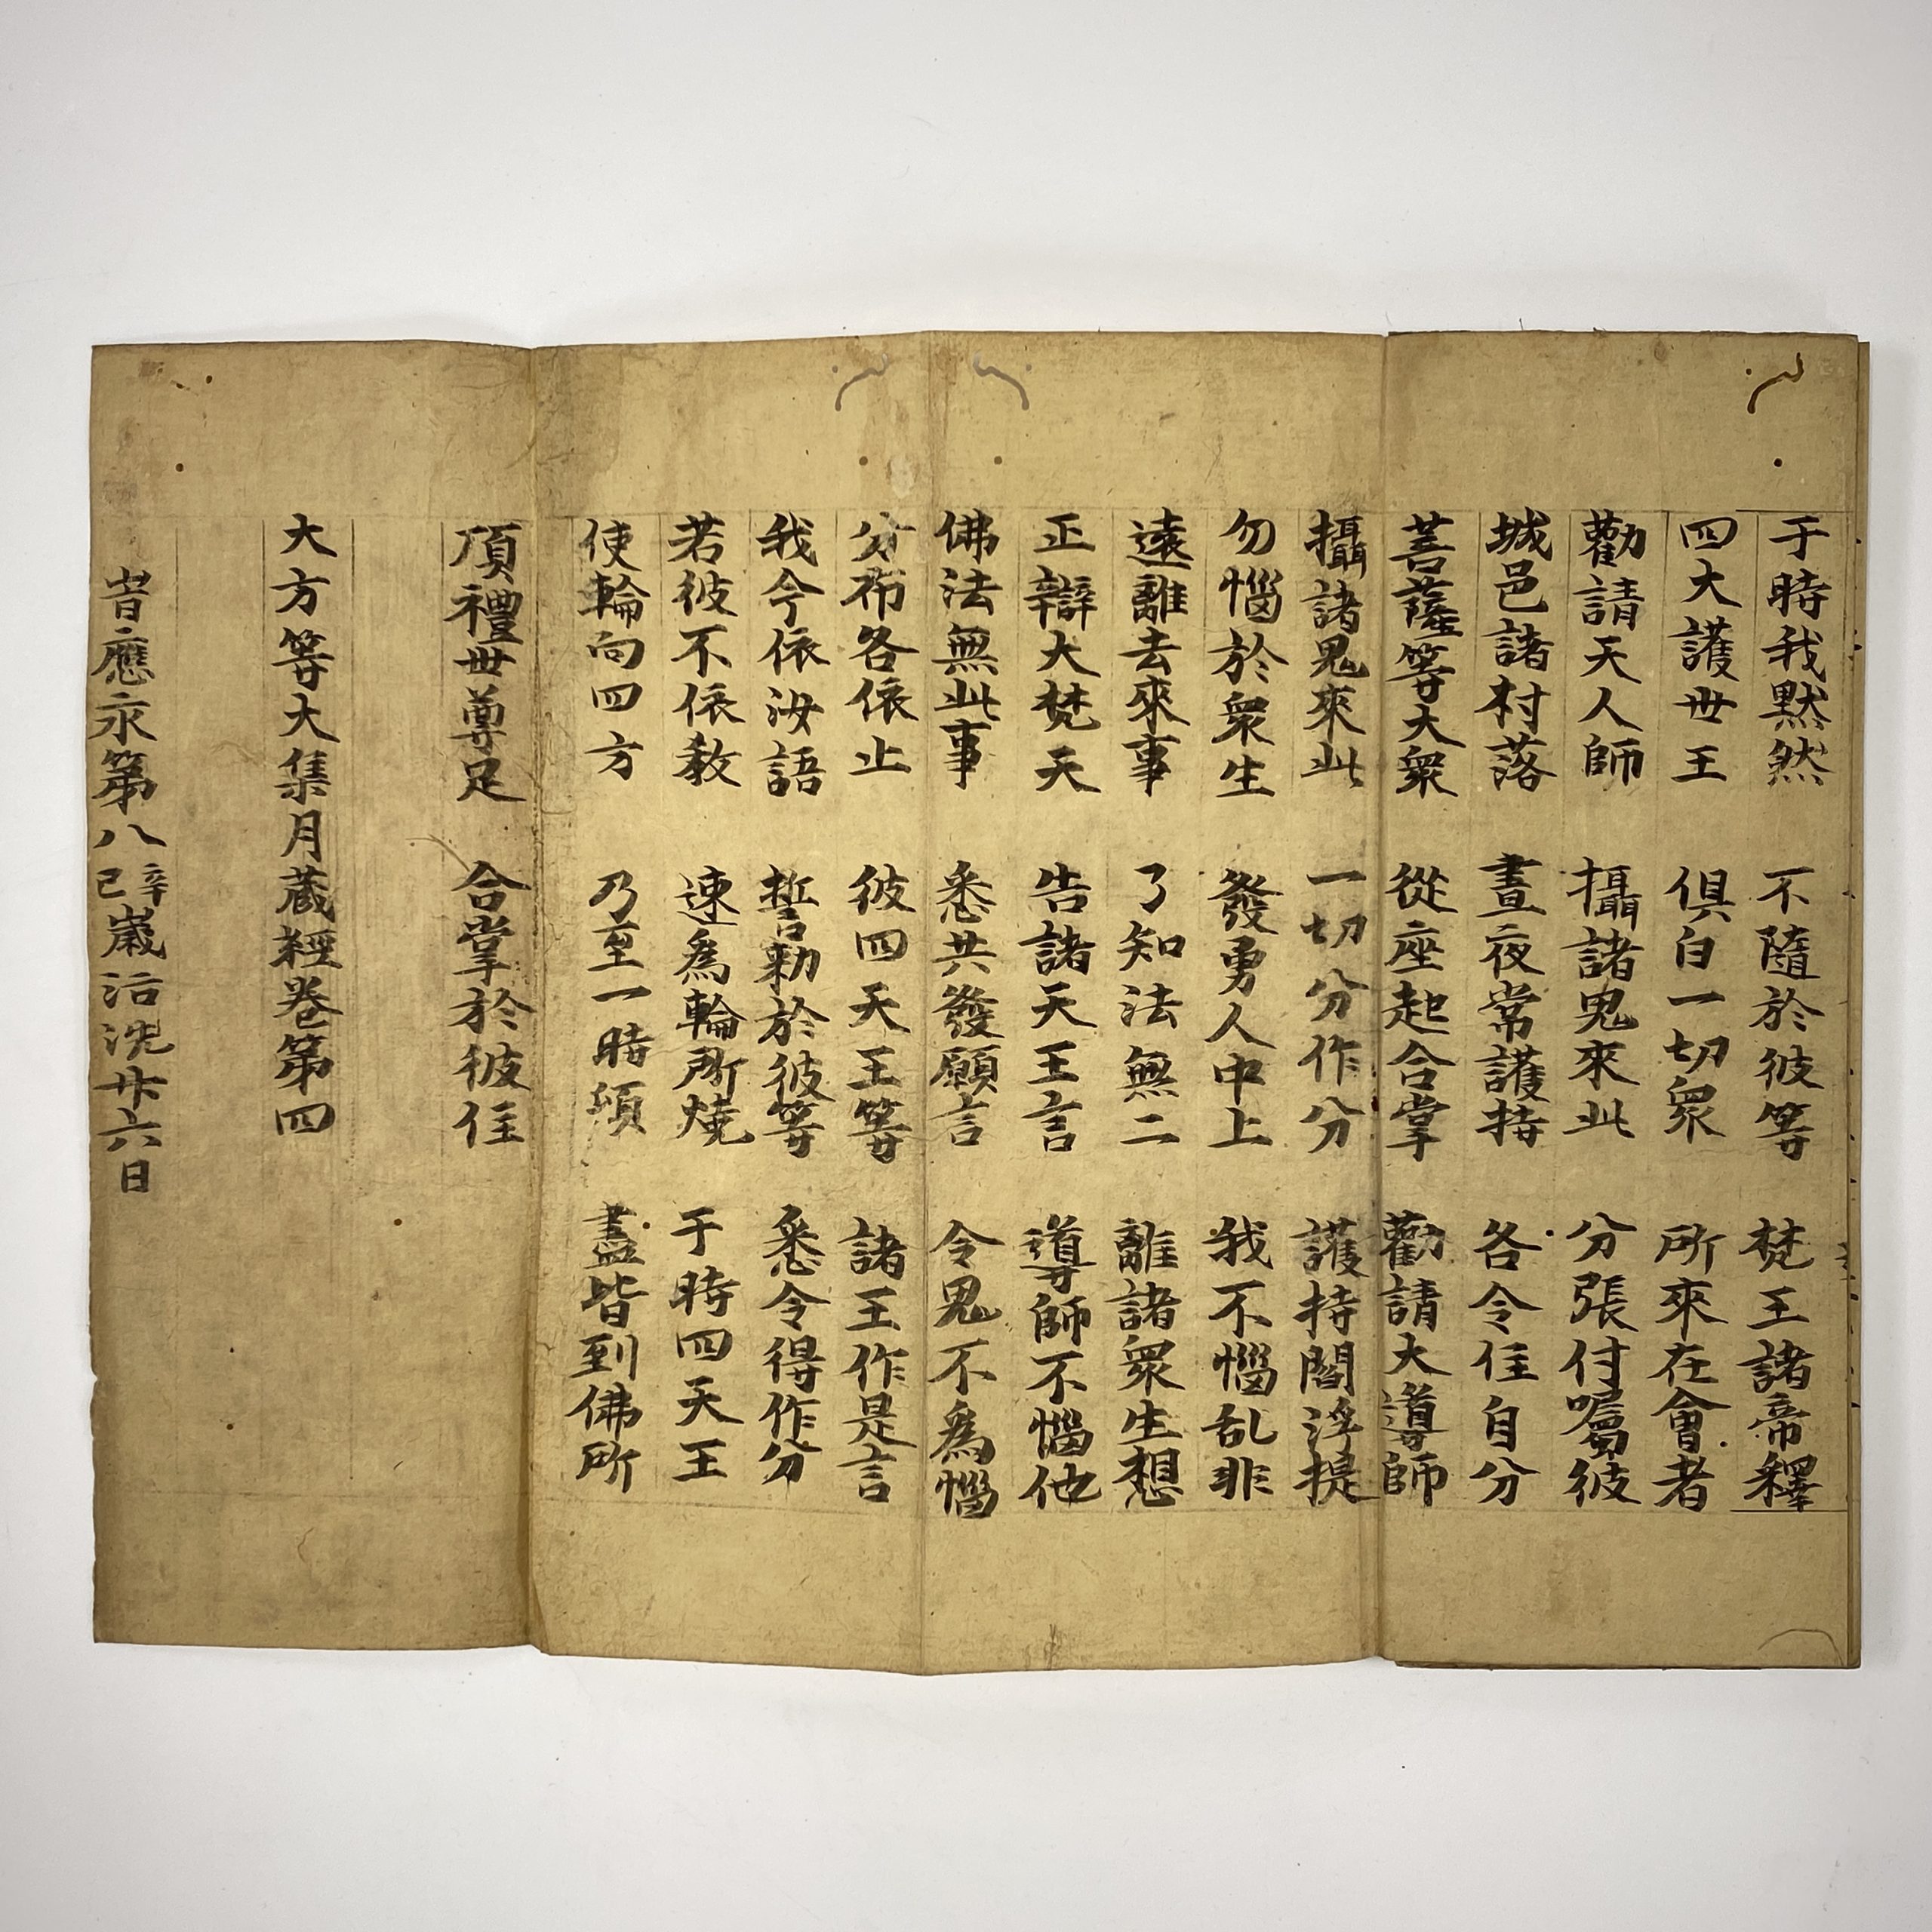 于時我默然　不隨於彼等　梵王諸帝釋
四大護世王　俱白一切衆　所來在會者
勸請天人師　攝諸鬼來此　分張付囑彼
城邑諸村落　晝夜常護持　各令住自分
菩薩等大衆　從座起合掌　勸請大導師
攝諸鬼來此　一切分作分　護持閻浮提
勿惱於衆生　發勇人中上　我不惱乱非
遠離去來事　了知法無二　離諸衆生想
正辯大梵天　告諸天王言　導師不惱他
佛法無此事　悉共發願言　令鬼不為惱
分布各依止　彼四天王等　諸王作是言
我今依汝語　誓勅於彼等　悉令得作分
若彼不依教　速為輪所燒　于時四天王
使輪向四方　乃至一時頃　盡皆到佛所
頂禮世尊足　合掌於彼住
大方等大集月藏經卷第四
旹應永第八辛巳歲沽洗廾六日